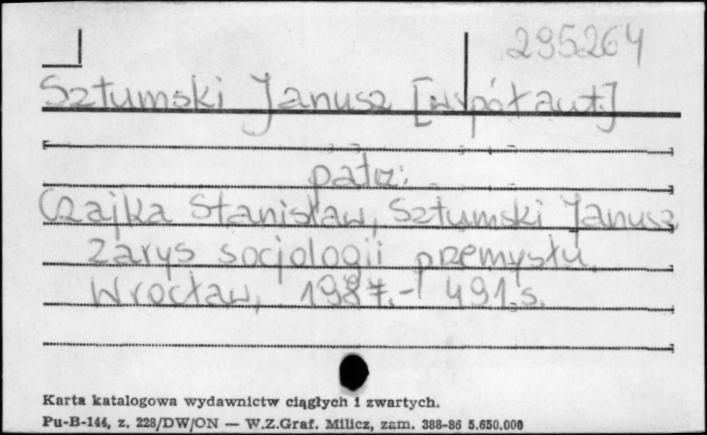 295264
Sztumski Janusz [współaut.]
patrz:
Czajka Stanisław, Sztumski Janusz
Zarys socjologii przemysłu.
Wrocław, 1987.- 491 s.
Karta katalogowa wydawnictw ciągłych i zwartych.
Pu-B-144, z. 228/DW/ON — W.Z.Graf. Milicz, zam. 388-86 5.650.000